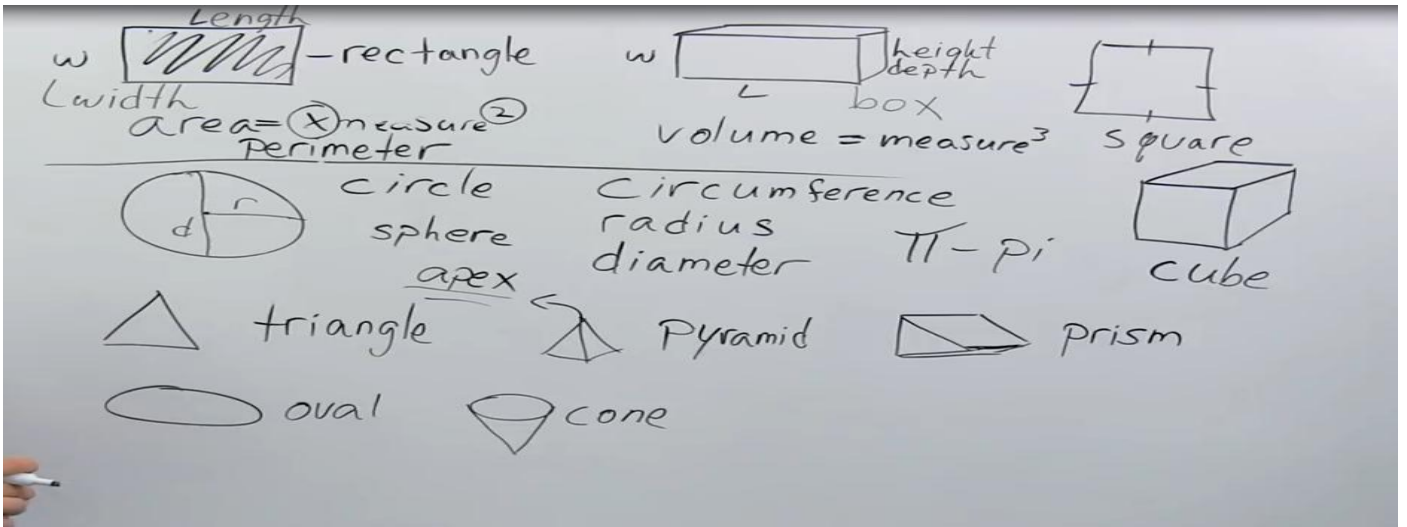 Length
w - rectangle
width
area = x measure 2
perimeter
w height
depth
L box
volume = measure³
square
circle circumference
r
d sphere radius
π - pi
diameter
cube
apex
triangle pyramid prism
oval cone